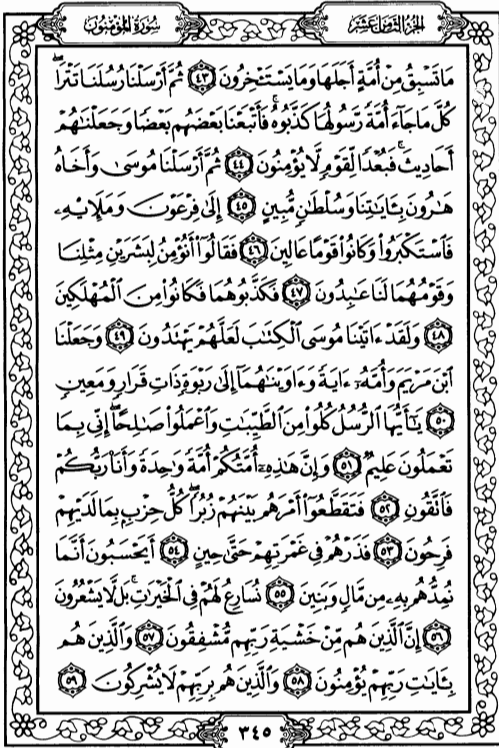 الجزء الثامن عشر
سورة المؤمنون
مَا تَسْبِقُ مِنْ أُمَّةٍ أَجَلَهَا وَمَا يَسْتَـْٔخِرُونَ ٤٣ ثُمَّ أَرْسَلْنَا رُسُلَنَا تَتْرَا ۖ
كُلَّ مَا جَآءَ أُمَّةً رَّسُولُهَا كَذَّبُوهُ ۚ فَأَتْبَعْنَا بَعْضَهُم بَعْضًا وَجَعَلْنَٰهُمْ
أَحَادِيثَ ۚ فَبُعْدًا لِّقَوْمٍ لَّا يُؤْمِنُونَ ٤٤ ثُمَّ أَرْسَلْنَا مُوسَىٰ وَأَخَاهُ
هَٰرُونَ بِـَٔايَٰتِنَا وَسُلْطَٰنٍ مُّبِينٍ ٤٥ إِلَىٰ فِرْعَوْنَ وَمَلَإِيْهِۦ
فَٱسْتَكْبَرُوا۟ وَكَانُوا۟ قَوْمًا عَالِينَ ٤٦ فَقَالُوٓا۟ أَنُؤْمِنُ لِبَشَرَيْنِ مِثْلِنَا
وَقَوْمُهُمَا لَنَا عَٰبِدُونَ ٤٧ فَكَذَّبُوهُمَا فَكَانُوا۟ مِنَ ٱلْمُهْلَكِينَ
٤٨ وَلَقَدْ ءَاتَيْنَا مُوسَى ٱلْكِتَٰبَ لَعَلَّهُمْ يَهْتَدُونَ ٤٩ وَجَعَلْنَا
ٱبْنَ مَرْيَمَ وَأُمَّهُۥٓ ءَايَةً وَءَاوَيْنَٰهُمَآ إِلَىٰ رَبْوَةٍ ذَاتِ قَرَارٍ وَمَعِينٍ
٥٠ يَٰٓأَيُّهَا ٱلرُّسُلُ كُلُوا۟ مِنَ ٱلطَّيِّبَٰتِ وَٱعْمَلُوا۟ صَٰلِحًا ۖ إِنِّى بِمَا
تَعْمَلُونَ عَلِيمٌ ٥١ وَإِنَّ هَٰذِهِۦٓ أُمَّتُكُمْ أُمَّةً وَٰحِدَةً وَأَنَا۠ رَبُّكُمْ
فَٱتَّقُونِ ٥٢ فَتَقَطَّعُوٓا۟ أَمْرَهُم بَيْنَهُمْ زُبُرًا ۖ كُلُّ حِزْبٍۭ بِمَا لَدَيْهِمْ
فَرِحُونَ ٥٣ فَذَرْهُمْ فِى غَمْرَتِهِمْ حَتَّىٰ حِينٍ ٥٤ أَيَحْسَبُونَ أَنَّمَا
نُمِدُّهُم بِهِۦ مِن مَّالٍ وَبَنِينَ ٥٥ نُسَارِعُ لَهُمْ فِى ٱلْخَيْرَٰتِ ۚ بَل لَّا يَشْعُرُونَ
٥٦ إِنَّ ٱلَّذِينَ هُم مِّنْ خَشْيَةِ رَبِّهِم مُّشْفِقُونَ ٥٧ وَٱلَّذِينَ هُم
بِـَٔايَٰتِ رَبِّهِمْ يُؤْمِنُونَ ٥٨ وَٱلَّذِينَ هُم بِرَبِّهِمْ لَا يُشْرِكُونَ ٥٩
٣٤٥